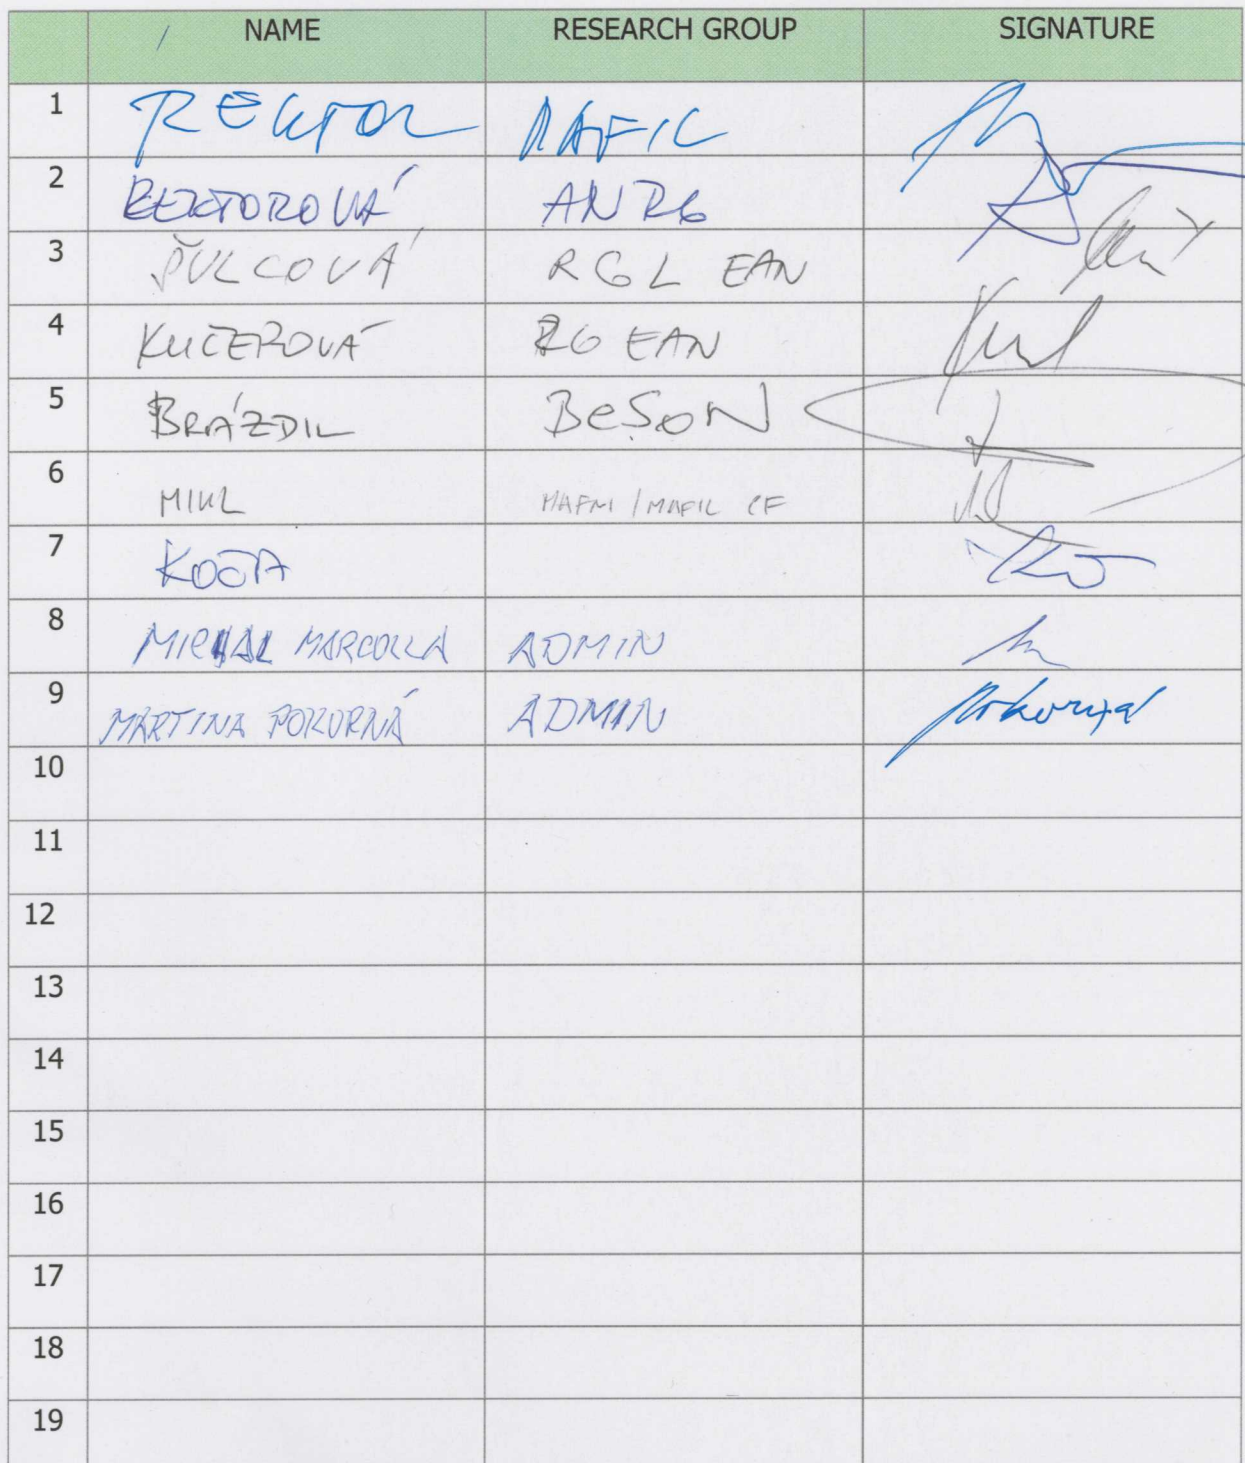 NAME RESEARCH GROUP SIGNATURE
1 REKTOR MAFIL
2 REKTOROVÁ ANRG
3 ŠULCOVÁ RGL EAN
4 KUČEROVÁ RG EAN
5 BRÁZDIL BeSoN
6 MIKL MAFMI / MAFIL CF
7 KOČA
8 MICHAL MARCOLLA ADMIN
9 MARTINA POKORNÁ ADMIN Pokorná
10
11
12
13
14
15
16
17
18
19